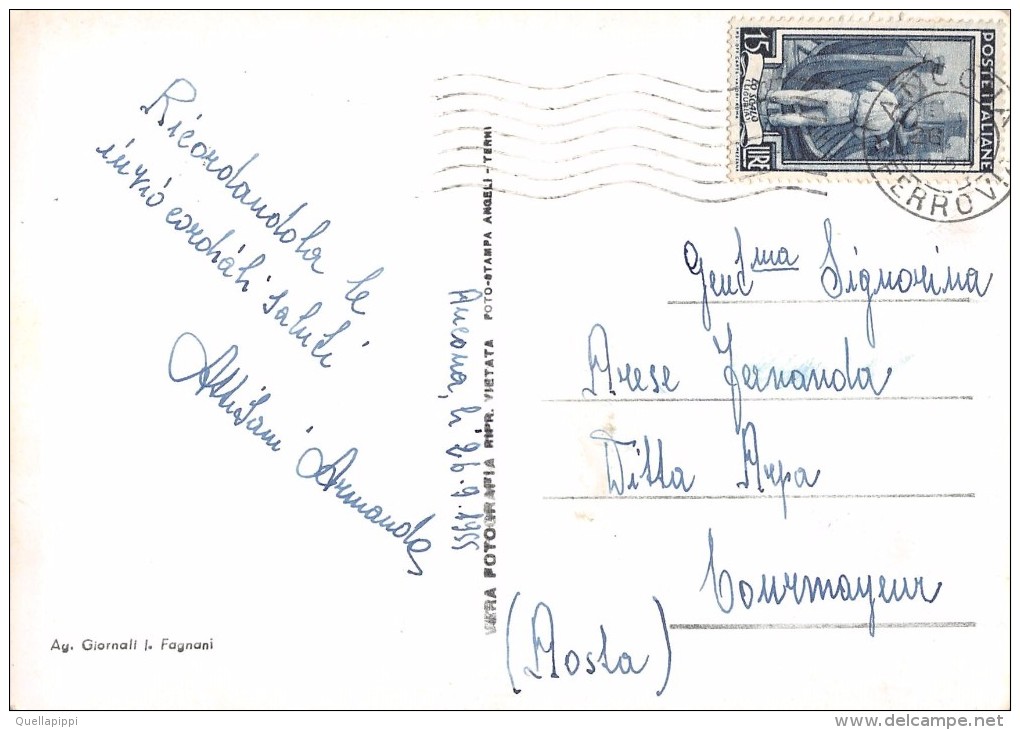 Ricordandola le
invio cordiali saluti
Attilani Armando
Ancona, li 26.9.1955
VERA FOTOGRAFIA RIPR. VIETATA FOTO-STAMPA ANGELI - TERNI
POSTE ITALIANE
15 LIRE
LO SCALO
LIGURIA
ANCONA
FERROVIA
Gent.ma Signorina
Arese Fernanda
Ditta Arpa
Courmayeur
(Aosta)
Ag. Giornali I. Fagnani
Quellapippi
www.delcampe.net